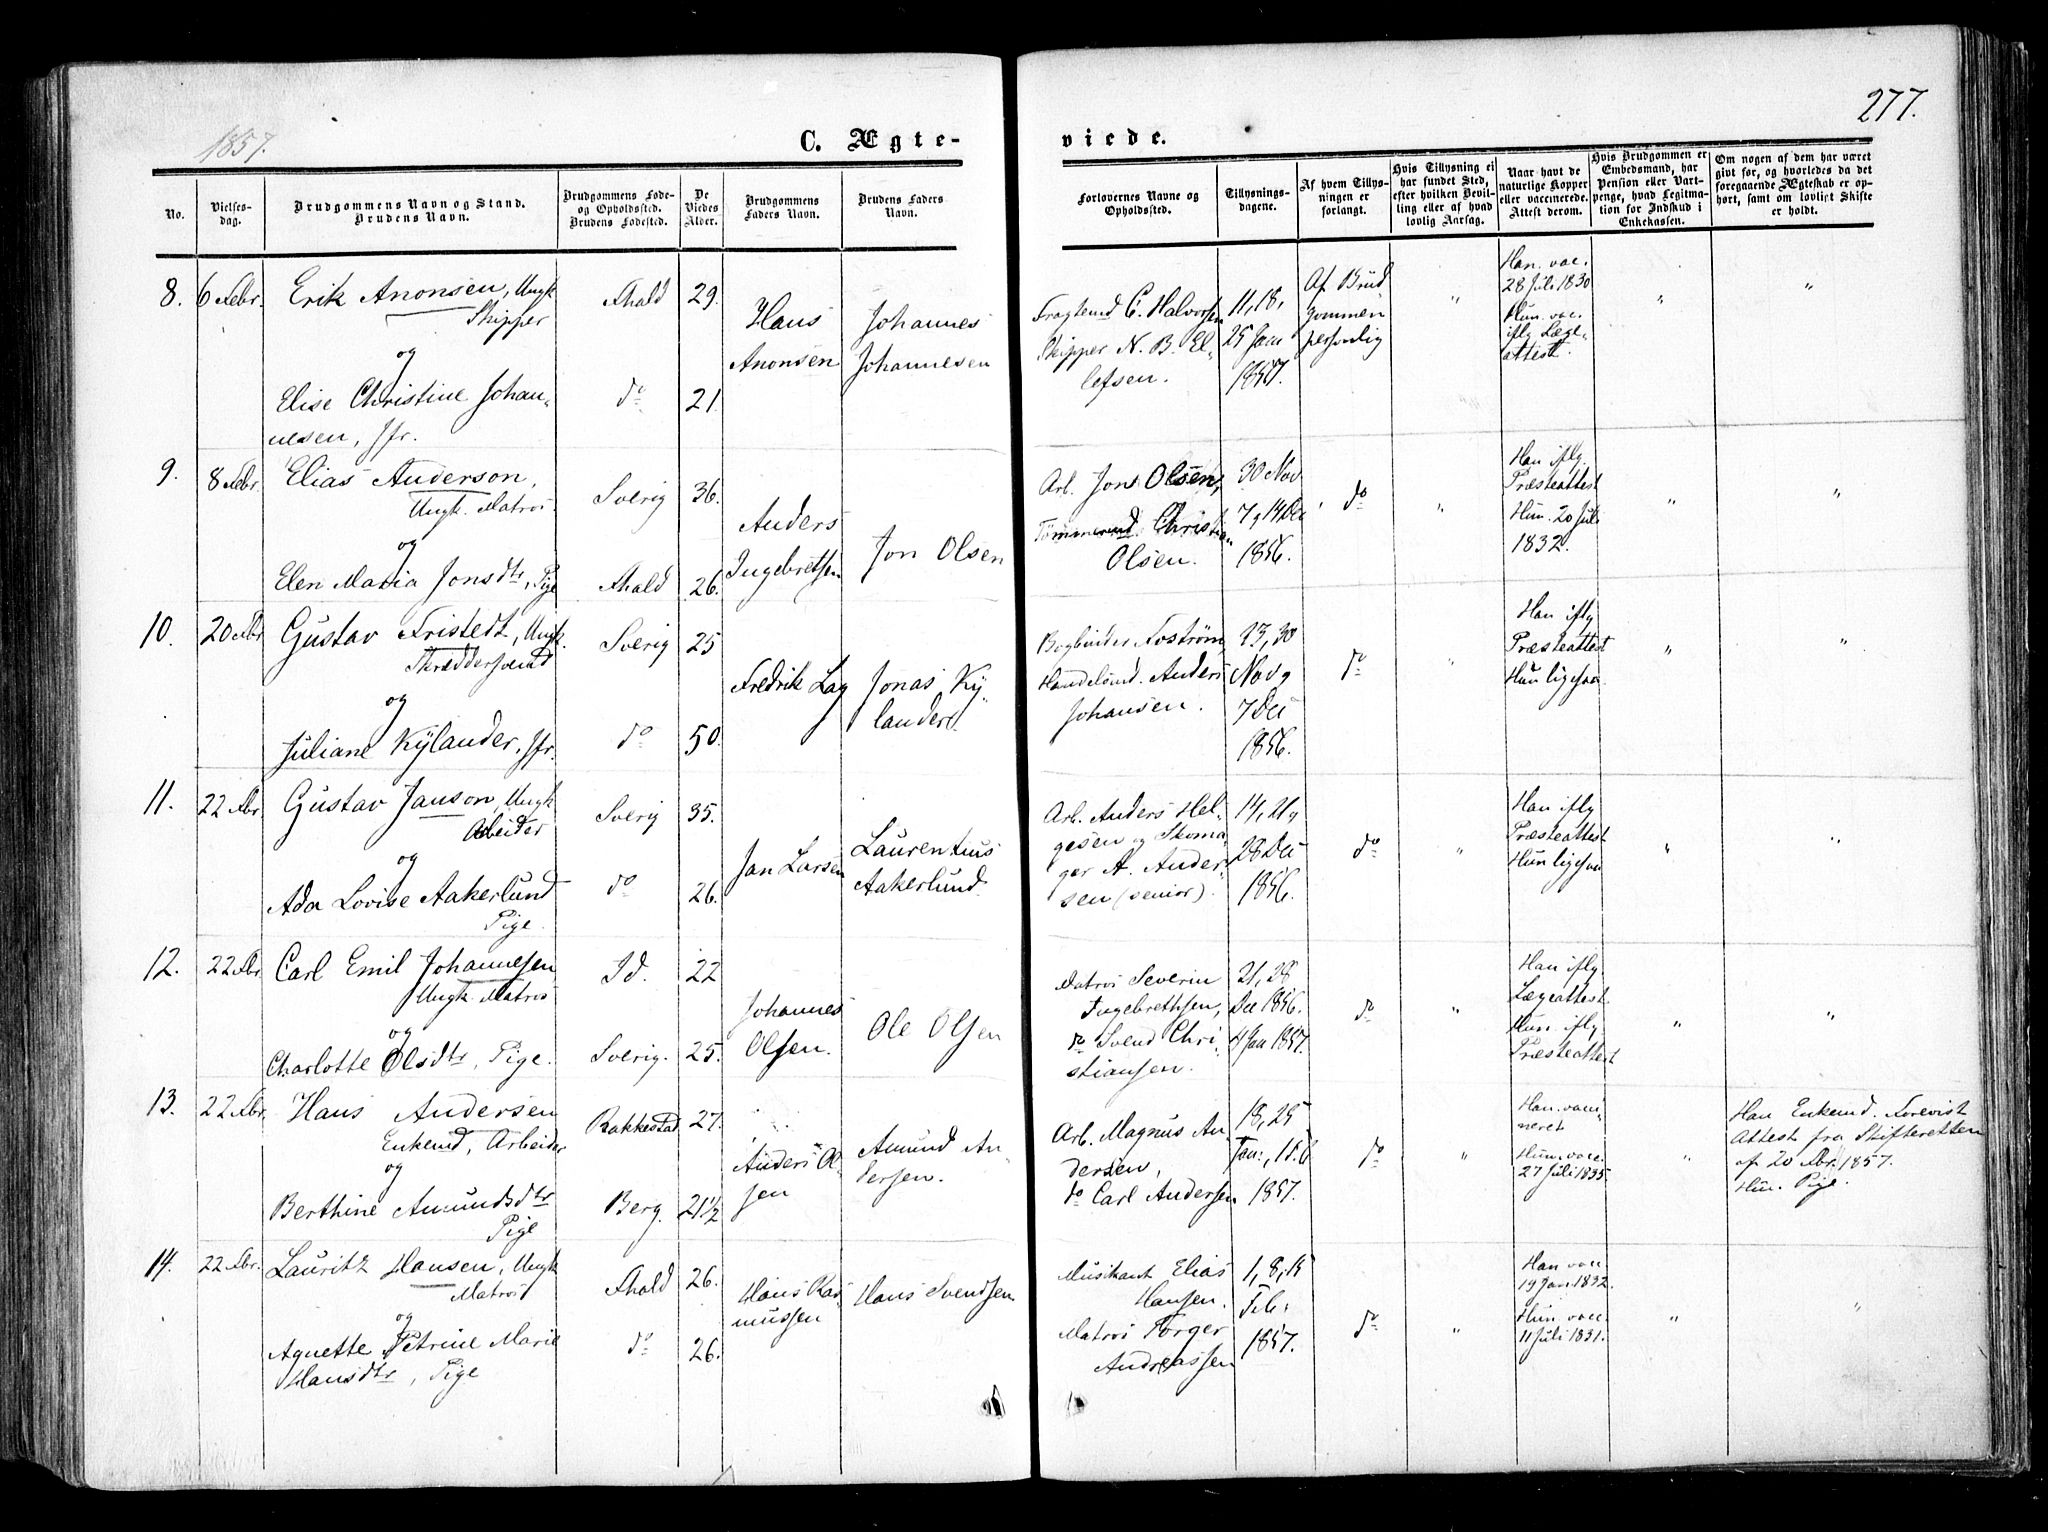 1857.
277.
C. Ægte-
viede.
No.
Vielses-
dag.
Brudgommens Navn og Stand.
Brudens Navn.
Brudgommens Føde-
og Opholdssted.
Brudens Fødested.
De
Viedes
Alder.
Brudgommens
Faders Navn.
Brudens Faders
Navn.
Forlovernes Navne og
Opholdssted.
Tillysnings-
dagene.
Af hvem Tillys-
ningen er
forlangt.
Hvis Tillysning ei
har fundet Sted,
efter hvilken Bevil-
ling eller af hvad
lovlig Aarsag.
Naar havt de
naturlige Kopper
eller vaccinerede.
Attest derom.
Hvis Brudgommen er
Embedsmand, har
Pension eller Vart-
penge, hvad Legitima-
tion for Indskud i
Enkekassen.
Om nogen af dem har været
givt før, og hvorledes da det
foregaaende Ægteskab er op-
hørt, samt om lovligt Skifte
er holdt.
8.
6 Febr.
Erik Anonsen, Ungk
Skipper
og
Elise Christine Johan-
nesen, Jfr.
Fhald
do
29.
21.
Hans
Anonsen
Johannes
Johannesen
Fragtemd C. Halvorsen
Skipper N. B. El-
lefsen.
11, 18,
25 Jan
1857.
Af Brud
gommen
personlig
"
Han vac.
28 Juli 1830
Hun vac.
iflg Læge-
attest.
"
"
9.
8 Febr.
Elias Anderson,
Ungk. Matros
og
Elen Maria Jonsdtr, Pige
Sverig
Fhald
36.
26.
Anders
Ingebretsen
Jon Olsen
Arb. Jons Olsen,
Tømmermd Christian
Olsen.
30 Nov
7 og 14 Dec
1856.
do
"
Han iflg.
Præsteattest
Hun 20 Juli
1832.
"
"
10.
20 Fbr
Gustav Fristedt, Ungk.
Skræddersvend
og
Juliane Kÿlander, Jfr.
Sverig
do
25
50.
Fredrik Lag
Jonas Kÿ-
lander
Bogbinder Fostrøm,
Handelsmd. Anders
Johansen.
23, 30
Nov og
7 Dec
1856.
do
"
Han iflg
Præsteattest
Hun ligesaa
"
"
11.
22 Fbr
Gustav Janson, Ungk
Arbeider
og
Ada Lovise Aakerlund
Pige.
Sverig
do
35.
26.
Jan Larsen
Laurentius
Aakerlund.
Arb. Anders Hel-
gesen og Skoma-
ger A. Ander-
sen (senior).
14, 21 og
28 Dec
1856.
do
"
Han iflg
Præsteattest
Hun ligesaa
"
"
12.
22 Fbr.
Carl Emil Johannesen
Ungk. Matros
og
Charlotte Olsdtr, Pige.
Id.
Sverig.
22
25.
Johannes
Olsen.
Ole Olsen
Matros Severin
Ingebrethsen,
do Svend Chri-
stiansen.
21, 28
Dec 1856.
4 Jan 1857.
do
"
Han iflg.
Lægeattest.
Hun iflg.
Præsteattest
"
"
13.
22 Fbr.
Hans Andersen
Enkemd, Arbeider
og
Berthine Amundsdtr
Pige
Rakkestad
Berg.
27.
21½
Anders Ol-
sen
Amund An-
dersen.
Arb. Magnus An
dersen,
do Carl Andersen
18, 25
Jan.,
1857.
do
"
Han vacci-
neret
Hun vacc.
27 Juli 1835
"
Han Enkemd. Forevist
Attest fra Skifteretten
af 20 Fbr. 1857.
Hun Pige.
14.
22 Fbr.
Lauritz Hansen, Ungk
Matros
og
Agnette Petrine Marie
Hansdtr, Pige
Fhald
do
26.
26.
Hans Ras
mussen
Hans Svendsen
Musikant Elias
Hansen.
Matros Torger
Andreassen
1, 8, 15
Feb.
1857.
do
"
Han vacc
19 Jan 1832.
Hun vacc.
11 Juli 1831.
"
"